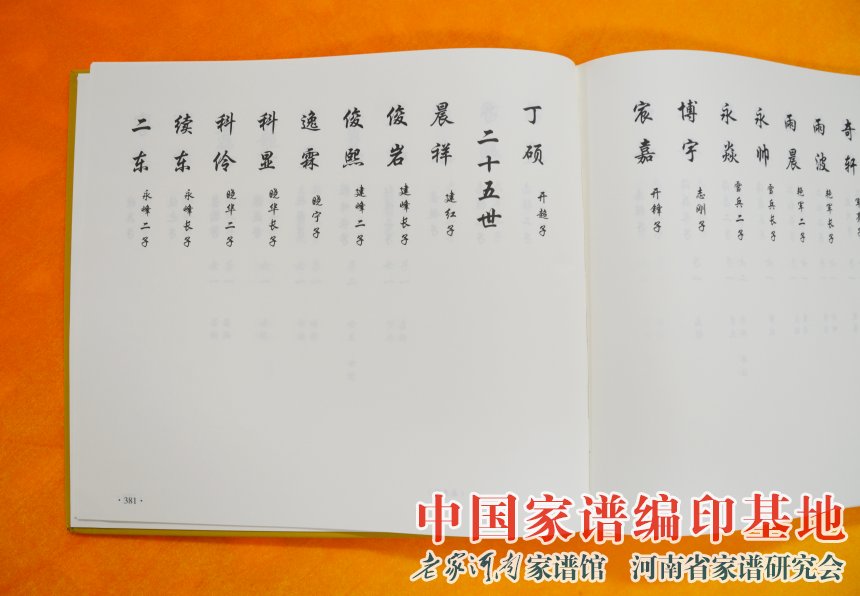 奇轩
雨波 艳军长子
雨晨 艳军二子
永帅 雪兵长子
永焱 雪兵二子
博宇 志刚子
宸嘉 开锋子
丁硕 开超子
二十五世
晨祥 建红子
俊岩 建峰长子
俊熙 建峰二子
逸霖 晓宁子
科显 晓华长子
科伶 晓华二子
续东 永峰长子
二东 永峰二子
·381·
中国家谱编印基地
老家河南家谱馆 河南省家谱研究会